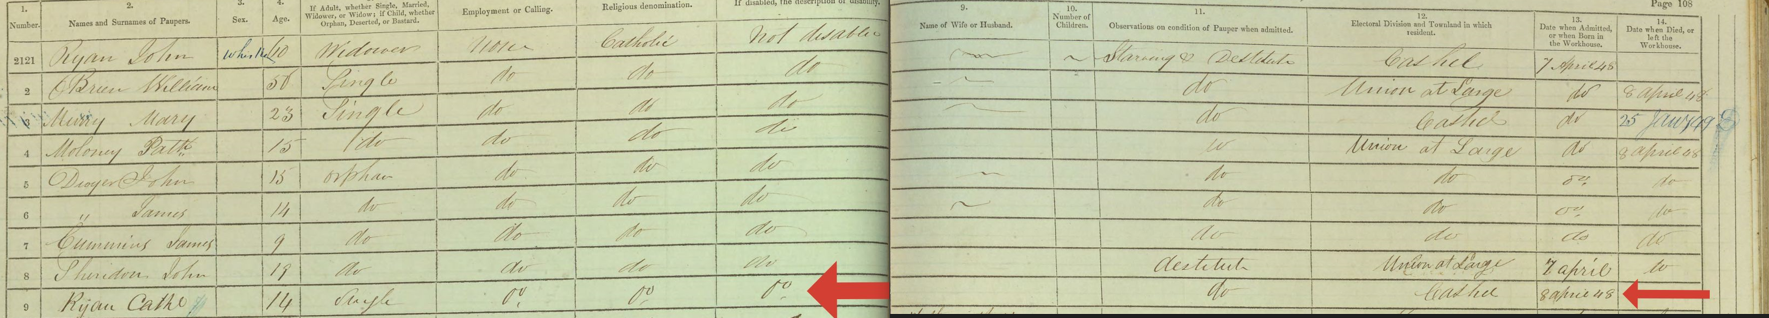 Page 108
1. 2. 3. 4. 9. 10. 11. 12. 13. 14.
Number. Names and Surnames of Paupers. Sex. Age. If Adult, whether Single, Married, Widower, or Widow; if Child, whether Orphan, Deserted, or Bastard. Employment or Calling. Religious denomination. If disabled, the description of disability. Name of Wife or Husband. Number of Children. Observations on condition of Pauper when admitted. Electoral Division and Townland in which resident. Date when Admitted, or when Born in the Workhouse. Date when Died, or left the Workhouse.
2121 Ryan John Widower None Catholic Not disabled Starving & Destitute Cashel 7 April 48
2 OBrien William 50 Single do do do do Union at Large do 8 april 48
3 Mary 23 Single do do do do Cashel do 25
4 Moloney Patk 15 do do do do do Union at Large do 8 april 48
5 Dwyer John 15 orphan do do do do do do do
6 " James 14 do do do do do do do do
7 Cummins James 9 do do do do do do do do
8 Sheridon John 19 do do do do destitute Union at Large 7 april do
9 Ryan Cathe 14 Single do do do do Cashel 8 april 48